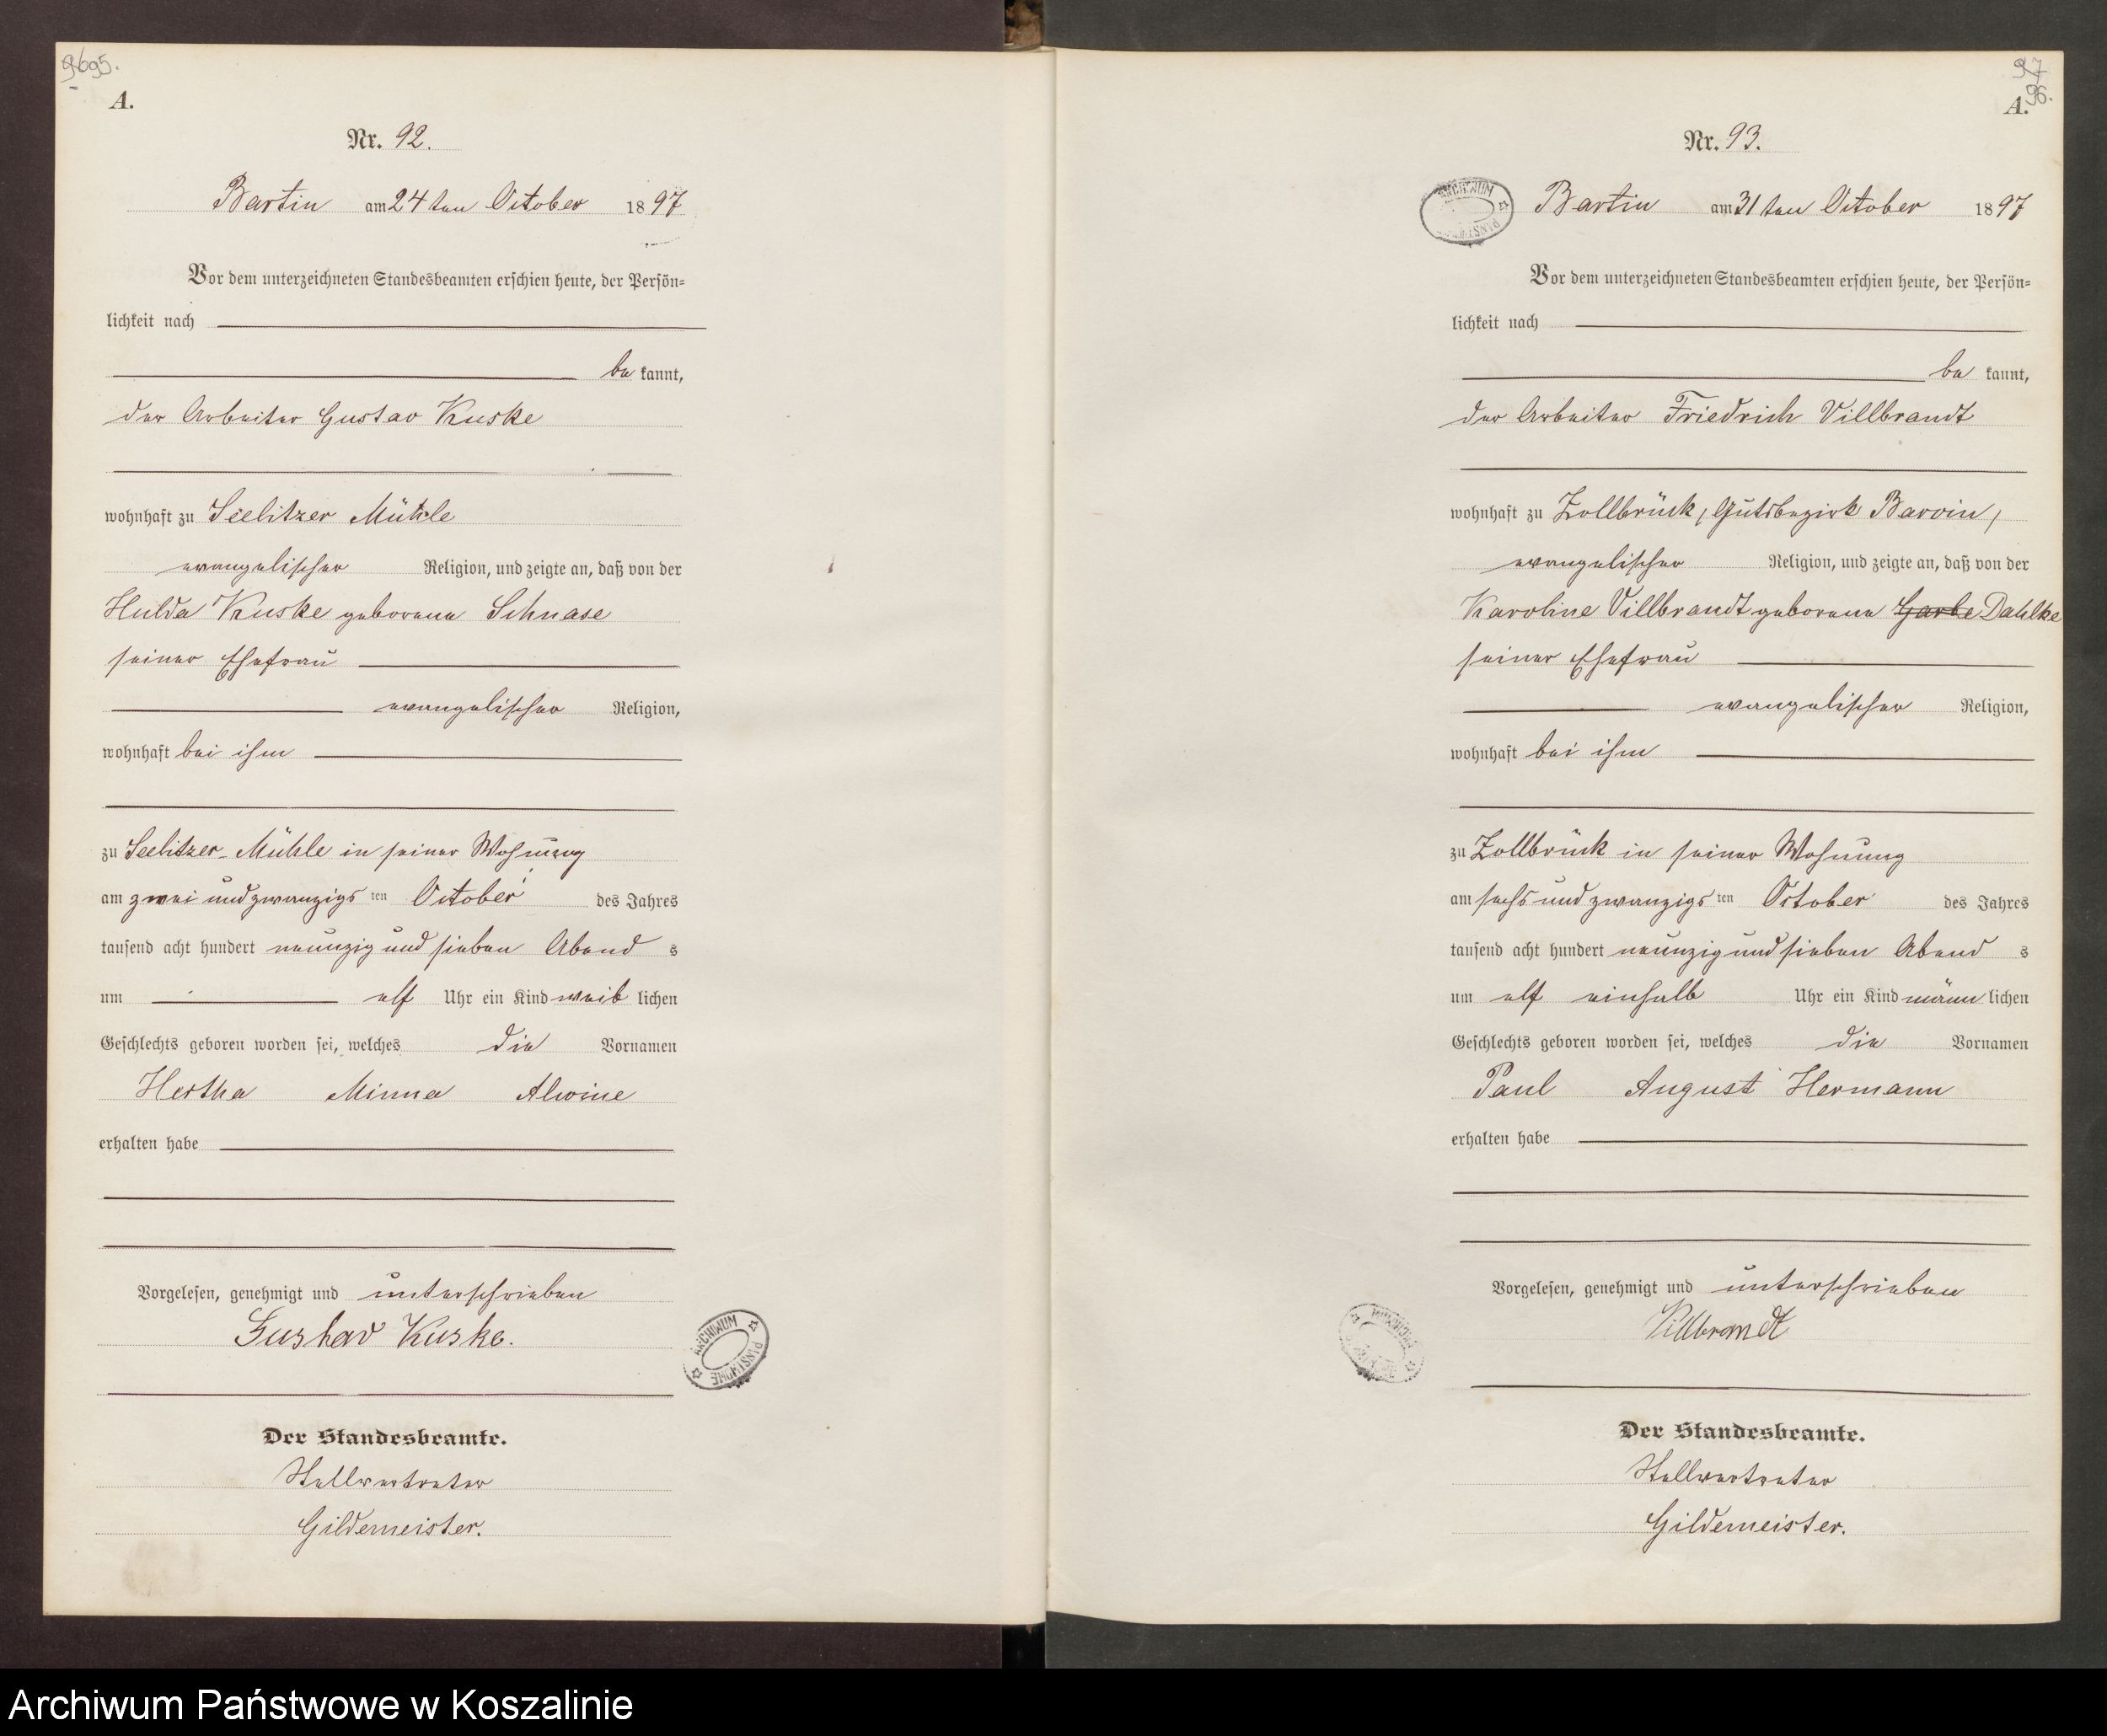 A.
Nr. 92.
Bartin am 24 ten October 1897
Vor dem unterzeichneten Standesbeamten erschien heute, der Persön=
lichkeit nach
be kannt,
der Arbeiter Gustav Kuske
wohnhaft zu Seelitzer Mühle
evangelischer Religion, und zeigte an, daß von der
Hulda Kuske geborene Schnase
seiner Ehefrau
evangelischer Religion,
wohnhaft bei ihm
zu Seelitzer-Mühle in seiner Wohnung
am zwei und zwanzigs ten October des Jahres
tausend acht hundert neunzig und sieben Abend s
um elf Uhr ein Kind weib lichen
Geschlechts geboren worden sei, welches die Vornamen
Hertha Minna Alwine
erhalten habe
Vorgelesen, genehmigt und unterschrieben
Gustav Kuske.
Der Standesbeamte.
Stellvertreter
Gildemeister.
ARCHIWUM PAŃSTWOWE
97
96.
A.
Nr. 93.
ARCHIWUM
Bartin am 31 ten October 1897
Vor dem unterzeichneten Standesbeamten erschien heute, der Persön=
lichkeit nach
be kannt,
der Arbeiter Friedrich Villbrandt
wohnhaft zu Zollbrück, Gutsbezirk Barvin,
evangelischer Religion, und zeigte an, daß von der
Karoline Villbrandt geborene Garbe Dahlke
seiner Ehefrau
evangelischer Religion,
wohnhaft bei ihm
zu Zollbrück in seiner Wohnung
am sechs und zwanzigs ten October des Jahres
tausend acht hundert neunzig und sieben Abend s
um elf einhalb Uhr ein Kind männ lichen
Geschlechts geboren worden sei, welches die Vornamen
Paul August Hermann
erhalten habe
Vorgelesen, genehmigt und unterschrieben
Villbrandt
Der Standesbeamte.
Stellvertreter
Gildemeister.
Archiwum Państwowe w Koszalinie